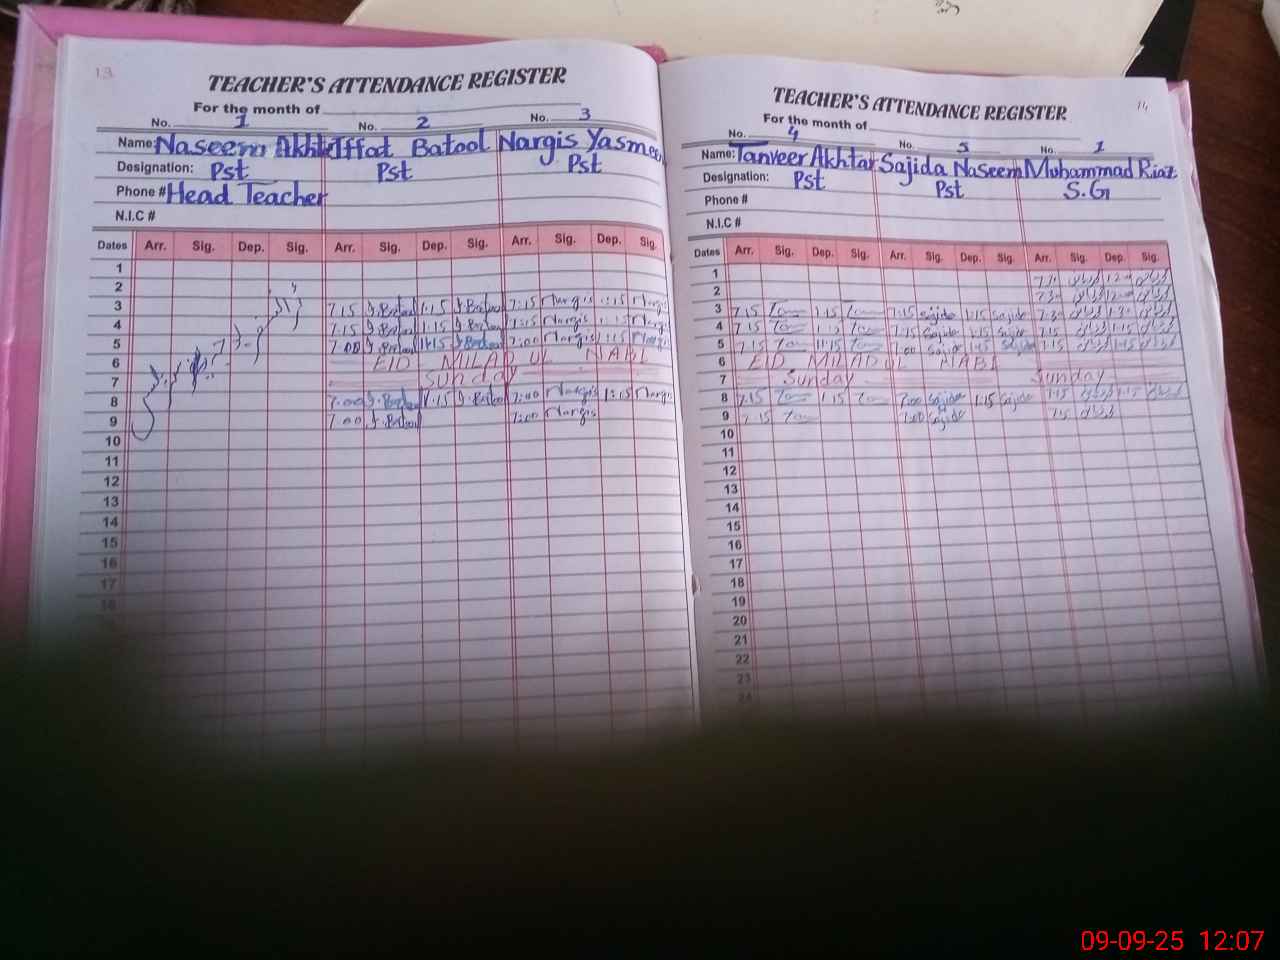 13
TEACHER'S ATTENDANCE REGISTER
For the month of
No. 1 No. 2 No. 3
Name: Naseem Akhtar Iffat Batool Nargis Yasmeen
Designation: Pst Pst Pst
Phone # Head Teacher
N.I.C #
Dates Arr. Sig. Dep. Sig. Arr. Sig. Dep. Sig. Arr. Sig. Dep. Sig.
1
2
3 7:15 I.Batool 1:15 I.Batool 7:15 Nargis 1:15 Nargis
4 7:15 I.Batool 1:15 I.Batool 7:15 Nargis 1:15 Nargis
5 7:00 I.Batool 1:15 I.Batool 7:00 Nargis 1:15 Nargis
6 EID MILAD UL NABI
7 Sunday
8 7:00 I.Batool 1:15 I.Batool 7:00 Nargis 1:15 Nargis
9 7:00 I.Batool 7:00 Nargis
10
11
12
13
14
15
16
17
18
14
TEACHER'S ATTENDANCE REGISTER
For the month of
No. 4 No. 5 No. 1
Name: Tanveer Akhtar Sajida Naseem Muhammad Riaz
Designation: Pst Pst S.G
Phone #
N.I.C #
Dates Arr. Sig. Dep. Sig. Arr. Sig. Dep. Sig. Arr. Sig. Dep. Sig.
1 7:30
2 7:30
3 7:15 1:15 7:15 Sajida 1:15 Sajida 7:30 1:30
4 7:15 1:15 7:15 Sajida 1:15 Sajida 7:15 1:15
5 7:15 1:15 7:00 Sajida 1:15 Sajida 7:15 1:15
6 EID MILAD UL NABI
7 Sunday Sunday
8 7:15 1:15 7:00 Sajida 1:15 Sajida 7:15 1:15
9 7:15 7:00 Sajida 7:15
10
11
12
13
14
15
16
17
18
19
20
21
22
23
24
09-09-25 12:07